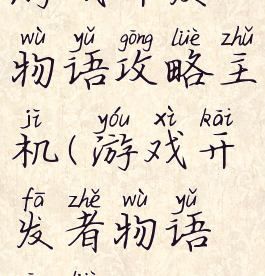 wù yǔ gōng lüè zhǔ
物语攻略主
jī yóu xì kāi
机(游戏开
fā zhě wù yǔ
发者物语